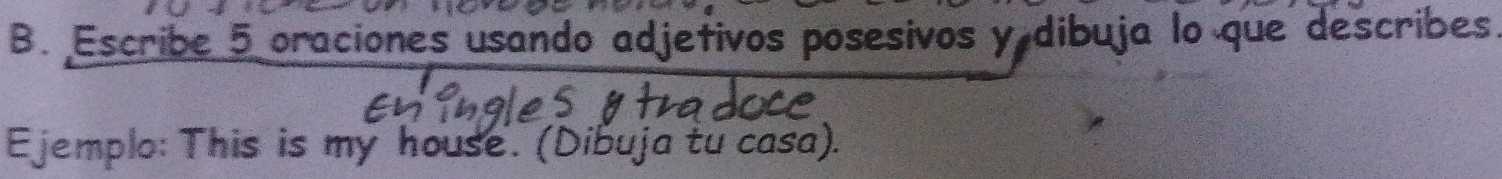 B. Escribe 5 oraciones usando adjetivos posesivos y dibuja lo que describes.
en ingles y tradoce
Ejemplo: This is my house. (Dibuja tu casa).